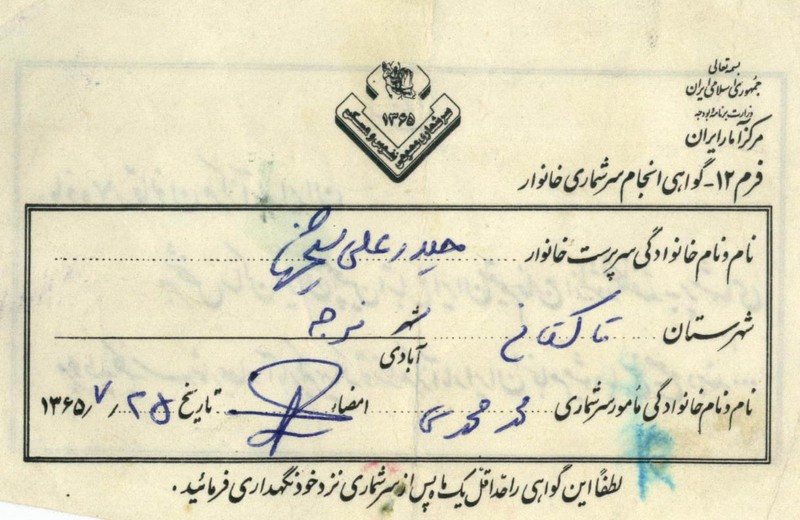 بسمه تعالی
جمهوری اسلامی ایران
وزارت برنامه و بودجه
مرکز آمار ایران
۱۳۶۵
سرشماری عمومی نفوس و مسکن
فرم ۱۲- گواهی انجام سرشماری خانوار
نام و نام خانوادگی سرپرست خانوار حیدر علی
شهرستان تاکستان شهر
آبادی
نام و نام خانوادگی مأمور سرشماری محمد محمدی امضاء تاریخ ۲۵/۷/۱۳۶۵
لطفاً این گواهی را حداقل یک ماه پس از سرشماری نزد خود نگهداری فرمائید.